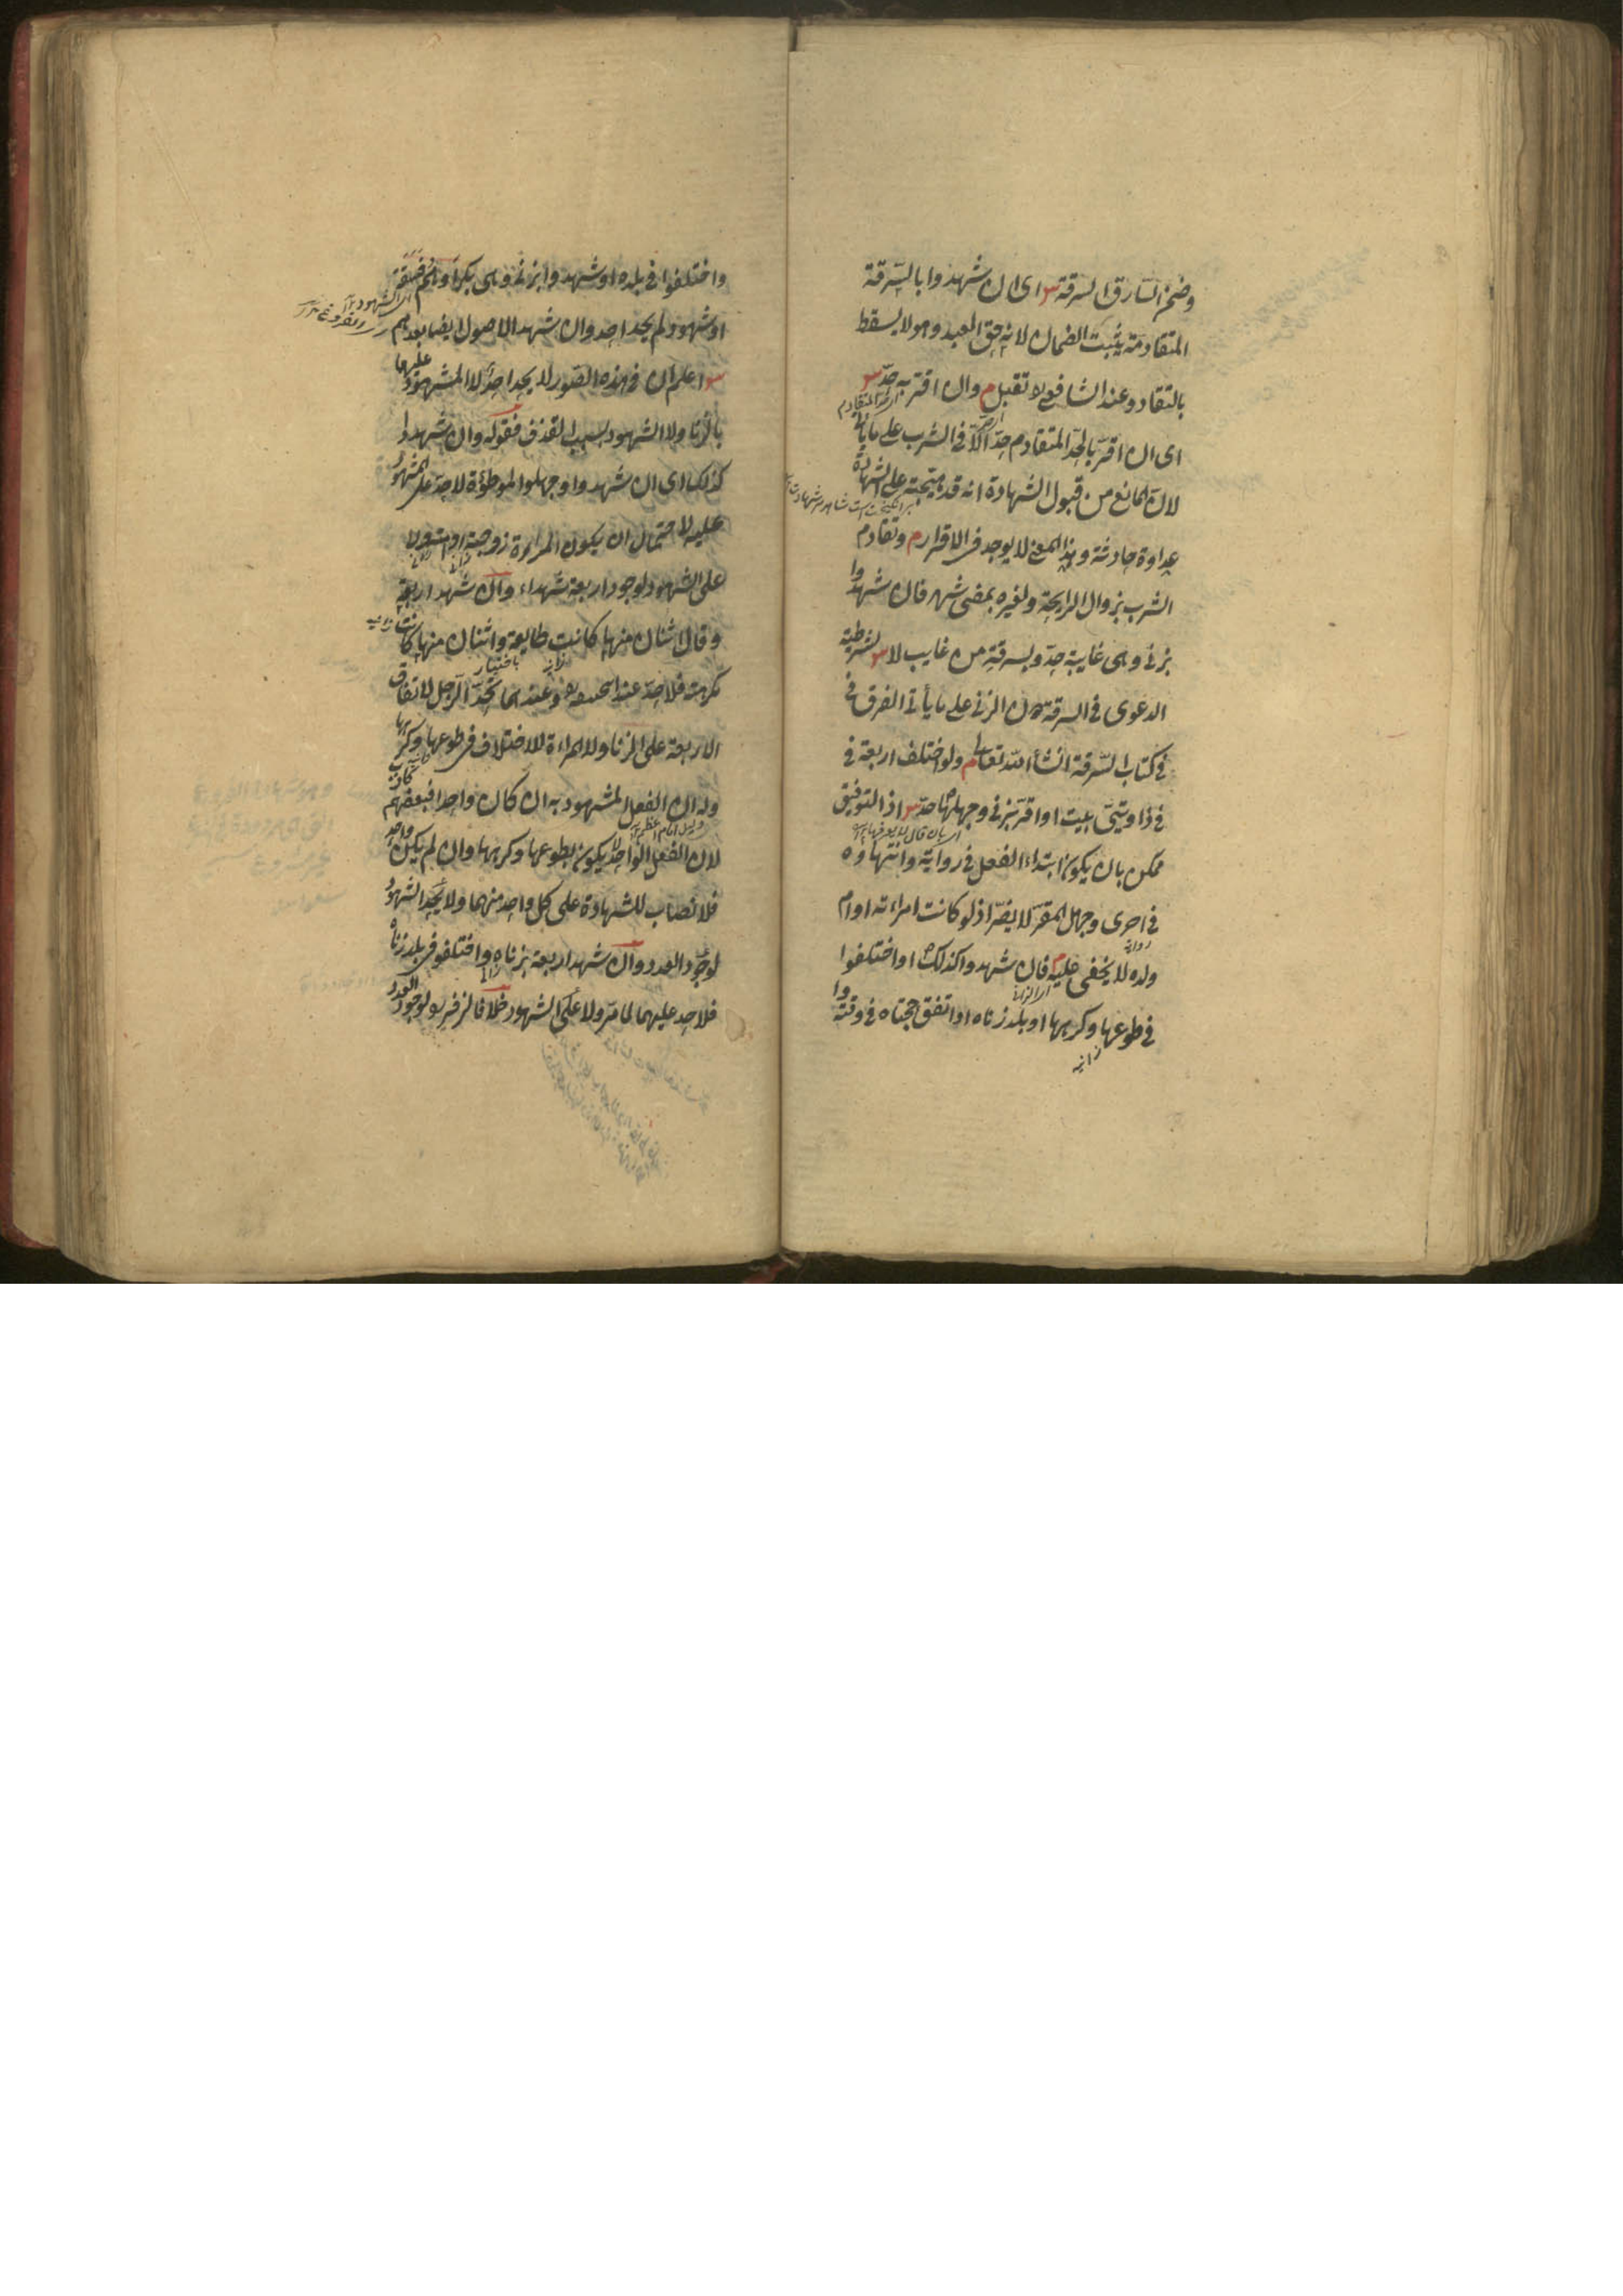 وضمن السارق السرقة س اى ان شهدوا بالسرقة
المتقادمة يثبت الضمان لانه حق العبد وهو لا يسقط
بالتقادم وعند الشافعى لا تقبل م وان اقر به حد س
اى ان اقر بالحد المتقادم حد الا فى الشرب على ما يأتى
لان المانع من قبول الشهادة انه قد هيجته على الشهادة
عداوة حادثة وهذا المعنى لا يوجد فى الاقرار م وتقادم
الشرب بزوال الرايحة ولغيره بمضى شهر فان شهدوا
بزنى وهى غايبة حد وبسرقة من غايب لا س لشرطية
الدعوى فى السرقة دون الزنى على ما يأتى الفرق فى
فى كتاب السرقة انشأ الله تعالى م ولو اختلف اربعة فى
فى زاويتى بيت او اقر بزنى وجهلها حد س اذ التوفيق
ممكن بان يكون ابتداء الفعل فى رواية وانتهاؤه
فى اخرى وجهل المقر لا يضر اذ لو كانت امراءته او ام
ولده لا يخفى عليه م فان شهدوا كذلك او اختلفوا
فى طوعها وكرهها او بلد زناه او اتفق حجتاه فى وقته
زانيه
واختلفوا فى بلده او شهدوا بزنى وهى بكر او هم فسقة
او شهود لم يحد احد وان شهد الاصول ايضا بعدهم
س اعلم ان فى هذه الصور لا يحد احد لا المشهود عليهما
بالزنا ولا الشهود بسبب القذف فقوله وان شهدوا
كذلك اى ان شهدوا وجهلوا الموطوءة لا حد على المشهود
عليه لاحتمال ان يكون المراءة زوجته او امته ولا
على الشهود لوجود اربعة شهداء وان شهد اربعة
وقال اثنان منها كانت طايعة واثنان منها كانت
مكرهة فلا حد عند ابى حنيفة وعندهما يحد الرجل لاتفاق
الاربعة على الزنا ولا المراءة للاختلاف فى طوعها وكرهها
وله ان الفعل المشهود به ان كان واحدا فبعضهم كاذب
لان الفعل الواحد لا يكون بطوعها وكرهها وان لم يكن واحد
فلا نصاب للشهادة على كل واحد منهما ولا يحد الشهود
لوجود العدد وان شهد اربعة بزناه واختلفو فى بلد زناه
فلا حد عليهما لما مر ولا على الشهود خلافا لزفر لوجود العدد